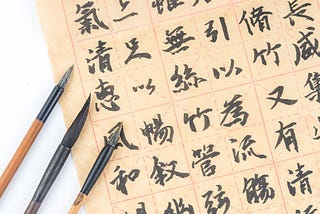 長咸集
脩竹又有清
引以為流觴
無絲竹管弦
足以暢敘幽
氣清惠風和